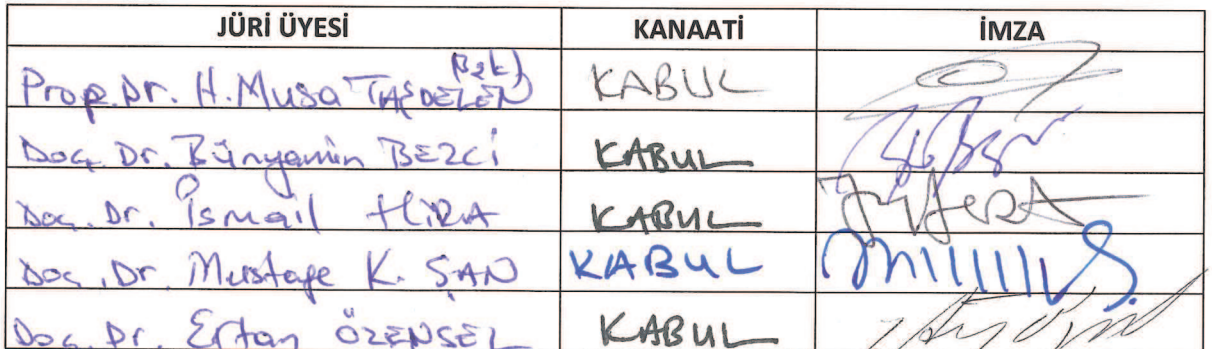 JÜRİ ÜYESİ KANAATİ İMZA
Prof. Dr. H. Musa TAŞDELEN KABUL
Doç. Dr. Bünyamin BEZCİ KABUL
Doç. Dr. İsmail HİRA KABUL
Doç. Dr. Mustafa K. ŞAN KABUL
Doç. Dr. Ertan ÖZENSEL KABUL